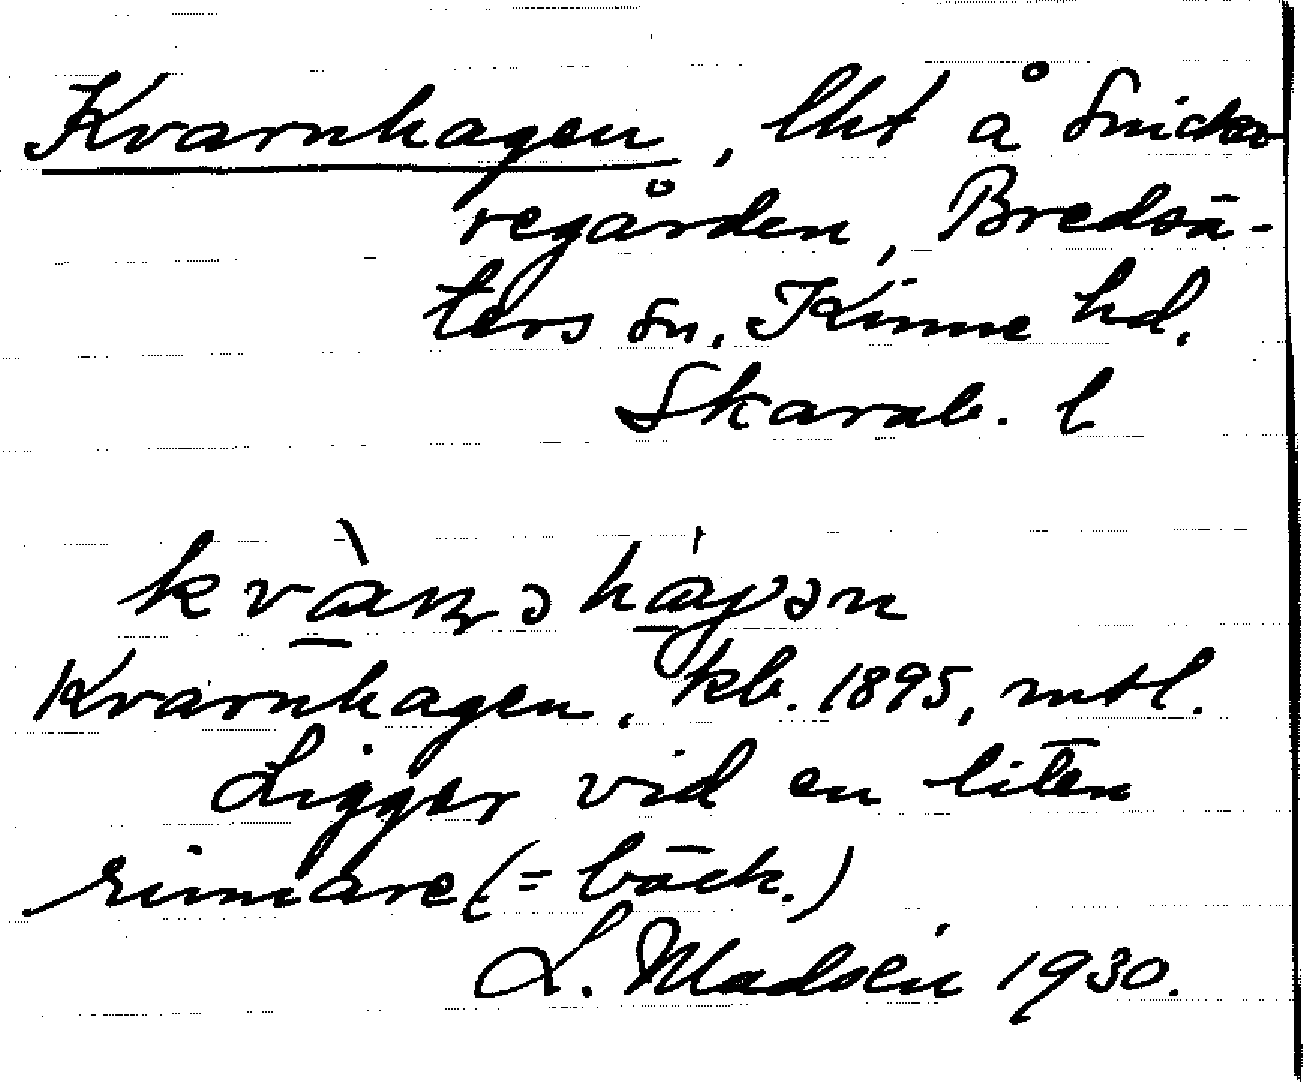 Kvarnhagen, lht å Snicka
regården, Bredsä-
ters sn, Kinne hd.
Skarab. l
Kvarnhagen, kb. 1895, mtl.
Ligger vid en liten
rinnare (= bäck.)
L. Madsén 1930.